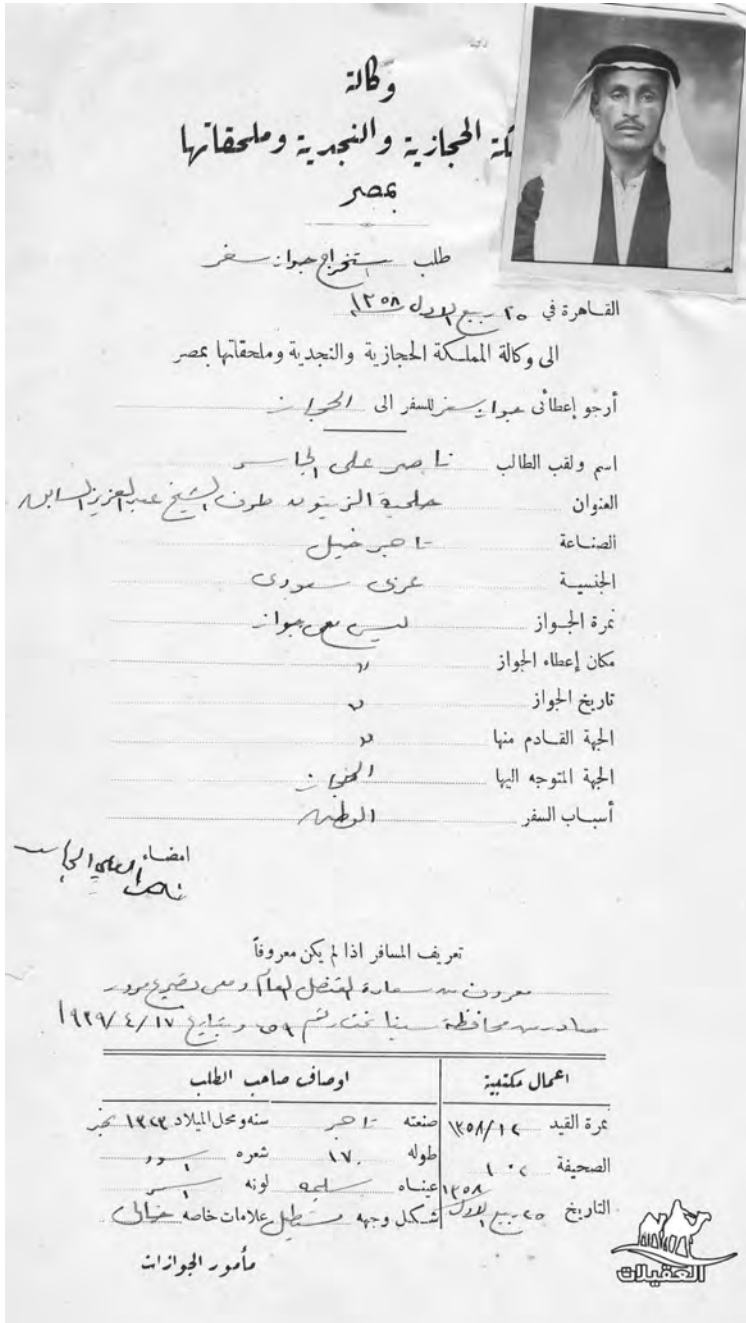 وكالة
الحجازية والنجدية وملحقاتها
بمصر
طلب استخراج جواز سفر
القاهرة في ٢٥ ربيع الاول ١٣٥٨
الى وكالة المملكة الحجازية والنجدية وملحقاتها بمصر
أرجو إعطائى جواز سفر للسفر الى الحجاز
اسم ولقب الطالب ناصر على الجاسر
العنوان حلمية الزيتون طرف الشيخ عبدالعزيز السابق
الصناعة تاجر خيل
الجنسية عربى سعودى
نمرة الجواز ليس معى جواز
مكان إعطاء الجواز "
تاريخ الجواز "
الجهة القادم منها "
الجهة المتوجه اليها الحجاز
أسباب السفر الوطن
امضاء
ناصر العلي الجاسر
تعريف المسافر اذا لم يكن معروفاً
معروف من سعادة القنصل العام ومعى تصريح مرور
صادر من محافظة سينا تحت رقم ٥٩ وبتاريخ ١٧ / ٤ / ١٩٣٩
اعمال مكتبية
اوصاف صاحب الطلب
نمرة القيد ١٢ / ١٣٥٨ صنعته تاجر سنه ومحل الميلاد ١٣٢٣ نجد
الصحيفة ١٠٢ طوله ١٧٠ شعره اسود
عيناه سليمه لونه اسمر
التاريخ ٢٥ ربيع الاول ١٣٥٨ شكل وجهه مستطيل علامات خاصه خالى
مأمور الجوازات
العقيلات